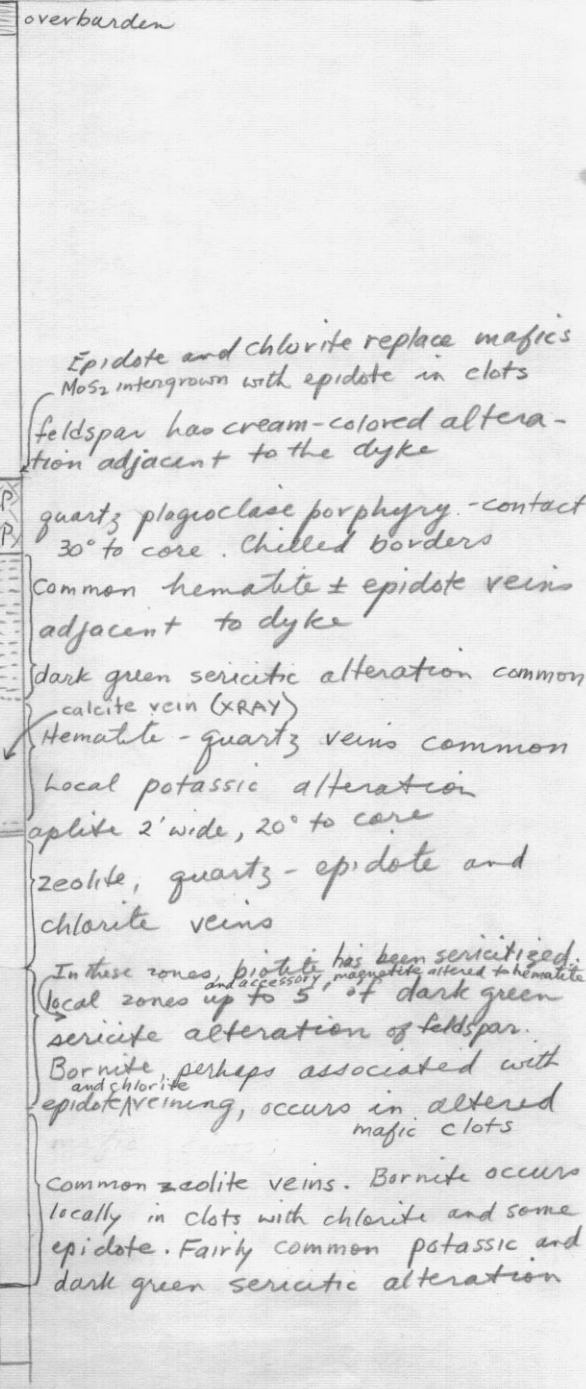 overburden
Epidote and chlorite replace mafics
MoS2 intergrown with epidote in clots
feldspar has cream-colored altera-
tion adjacent to the dyke
P
P
quartz plagioclase porphyry - contact
30° to core. Chilled borders
Common hematite ± epidote veins
adjacent to dyke
dark green sericitic alteration common
calcite vein (XRAY)
Hematite - quartz veins common
Local potassic alteration
aplite 2' wide, 20° to core
zeolite, quartz - epidote and
chlorite veins
In these zones, biotite has been sericitized.
and accessory magnetite altered to hematite
local zones up to 5' of dark green
sericite alteration of feldspar.
Bornite, perhaps associated with
and chlorite
epidote veining, occurs in altered
mafic clots
Common zeolite veins. Bornite occurs
locally in clots with chlorite and some
epidote. Fairly common potassic and
dark green sericitic alteration